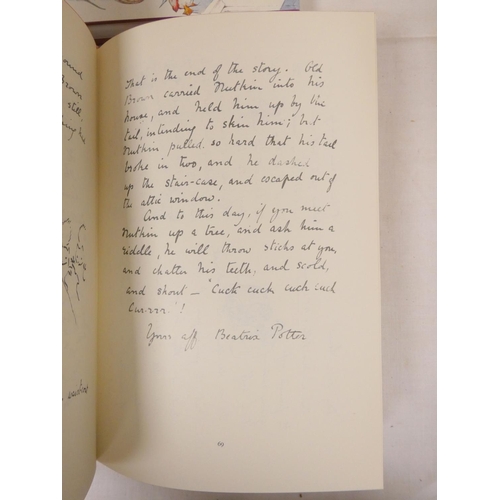 That is the end of the story. Old
Brown carried Nutkin into his
house, and held him up by the
tail, intending to skin him; but
Nutkin pulled so hard that his tail
broke in two, and he dashed
up the stair-case, and escaped out of
the attic window.
And to this day, if you meet
Nutkin up a tree, and ask him a
riddle, he will throw sticks at you,
and chatter his teeth, and scold,
and shout — "Cuck cuck cuck cuck
Cur-rrr"!
Yrs aff Beatrix Potter